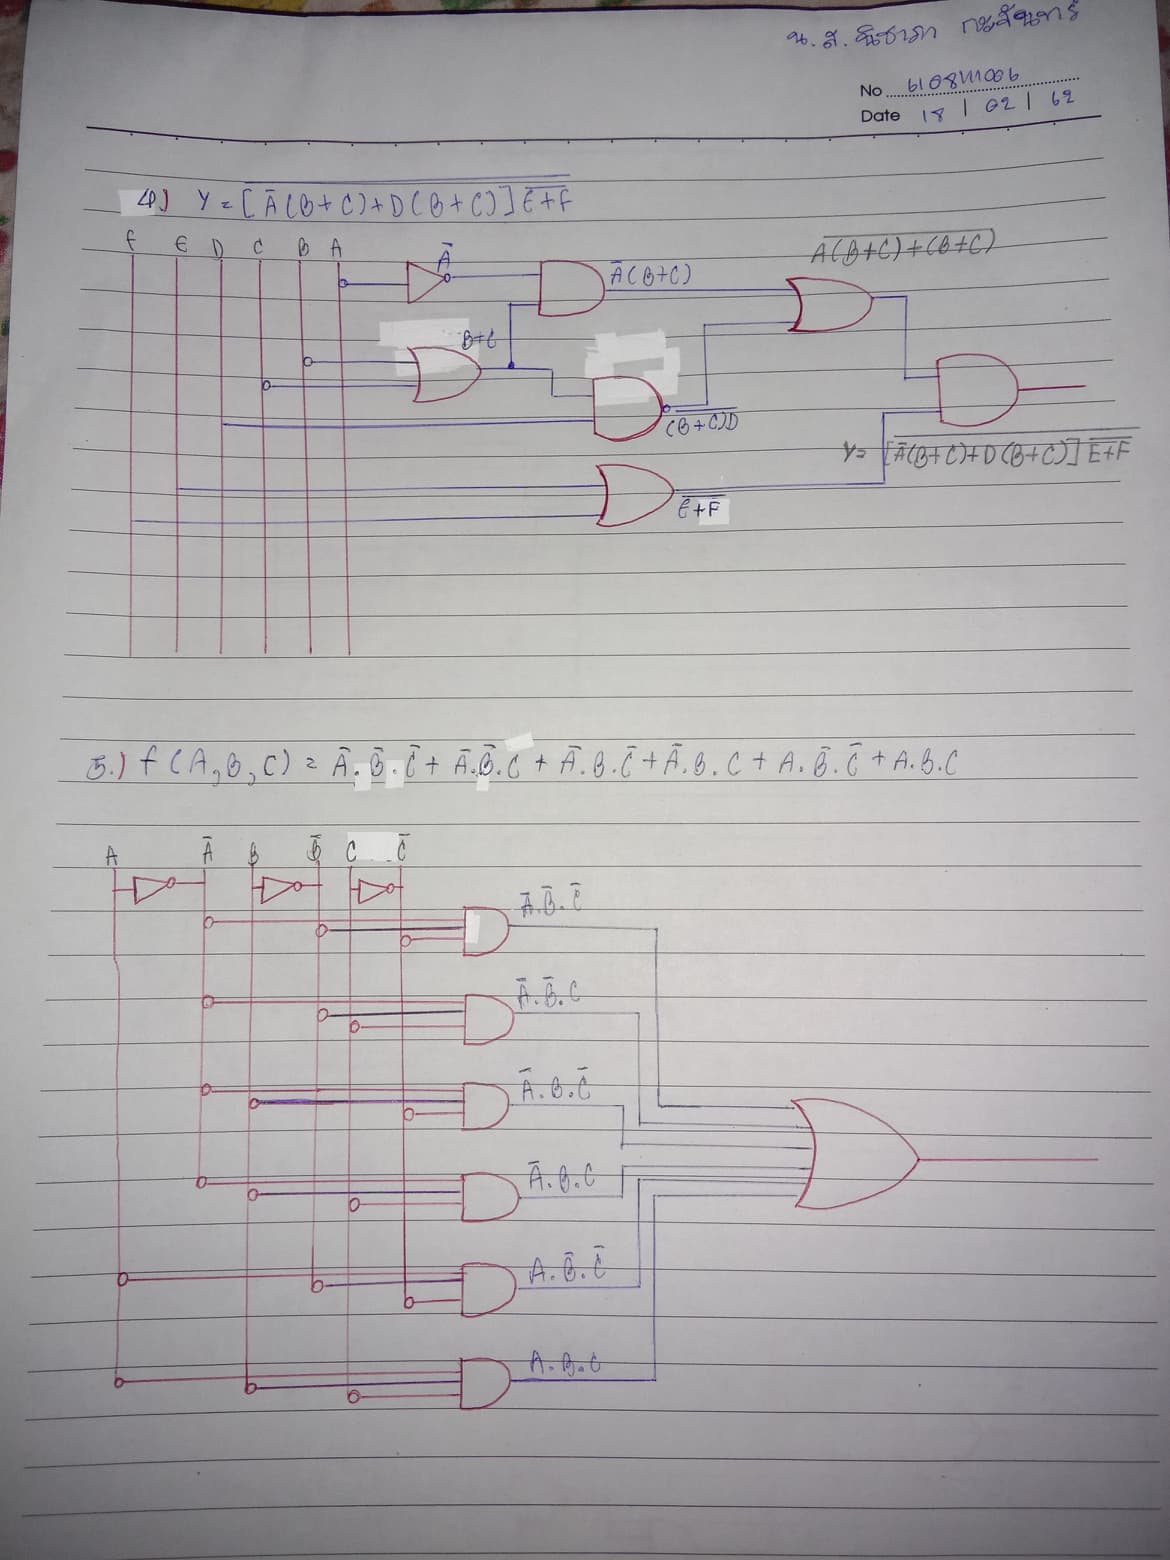 น.ส. ณิชาภา
No 6108111006
Date 18 | 02 | 62
4) Y = [ A̅(B+C)+D(B+C)] E̅+̅F̅
F E D C B A
A̅
A̅(B+C)
A(B+C)+(B+C)
B+C
(B+C)D
Y= [A̅(B+C)+D(B+C)] E̅+̅F̅
E̅+̅F̅
5.) f(A,B,C) = A̅.B̅.C̅ + A̅.B̅.C + A̅.B.C̅ + A̅.B.C + A.B̅.C̅ + A.B.C
A A̅ B B̅ C C̅
A̅.B̅.C̅
A̅.B̅.C
A̅.B.C̅
A̅.B.C
A.B̅.C̅
A.B.C